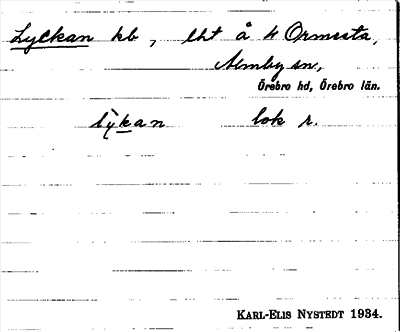 Lyckan kb, lht å 4 Ormesta,
Almby sn,
Örebro hd, Örebro län.
lỳkan lok r.
KARL-ELIS NYSTEDT 1934.